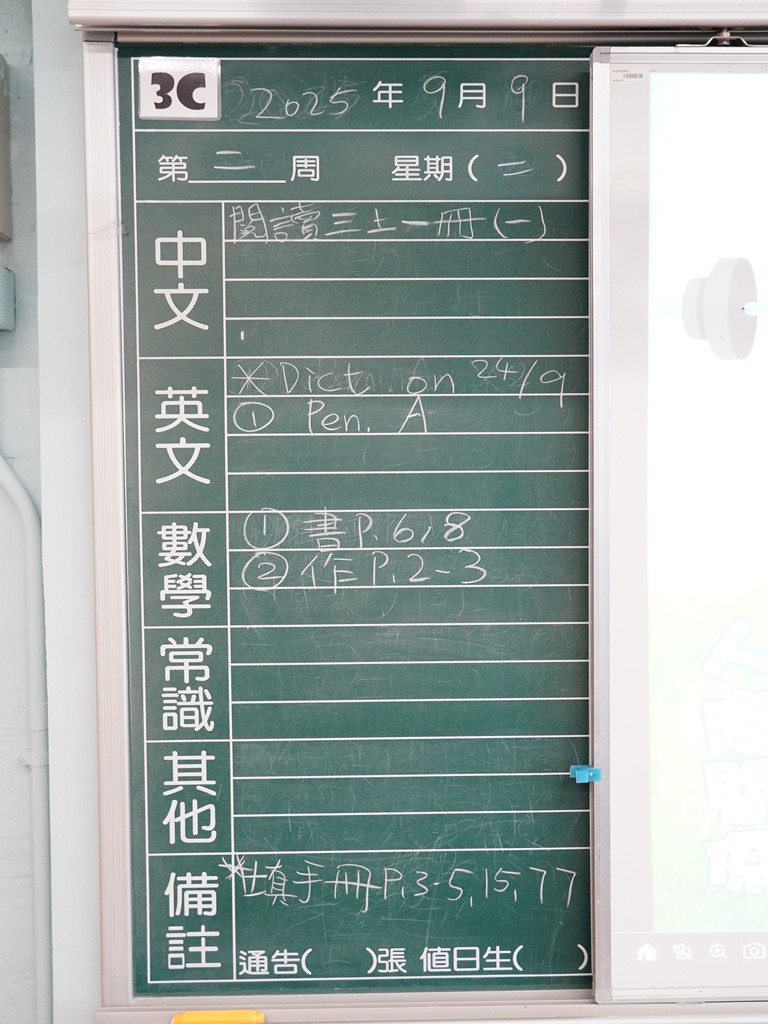 3C 2025年9月9日
第二周 星期(二)
中文
閱讀三上一冊(一)
英文
*Dict. on 24/9
① Pen. A
數學
① 書P.6,8
② 作P.2-3
常識
其他
備註
*填手冊P.3-5,15,77
通告( )張 值日生( )